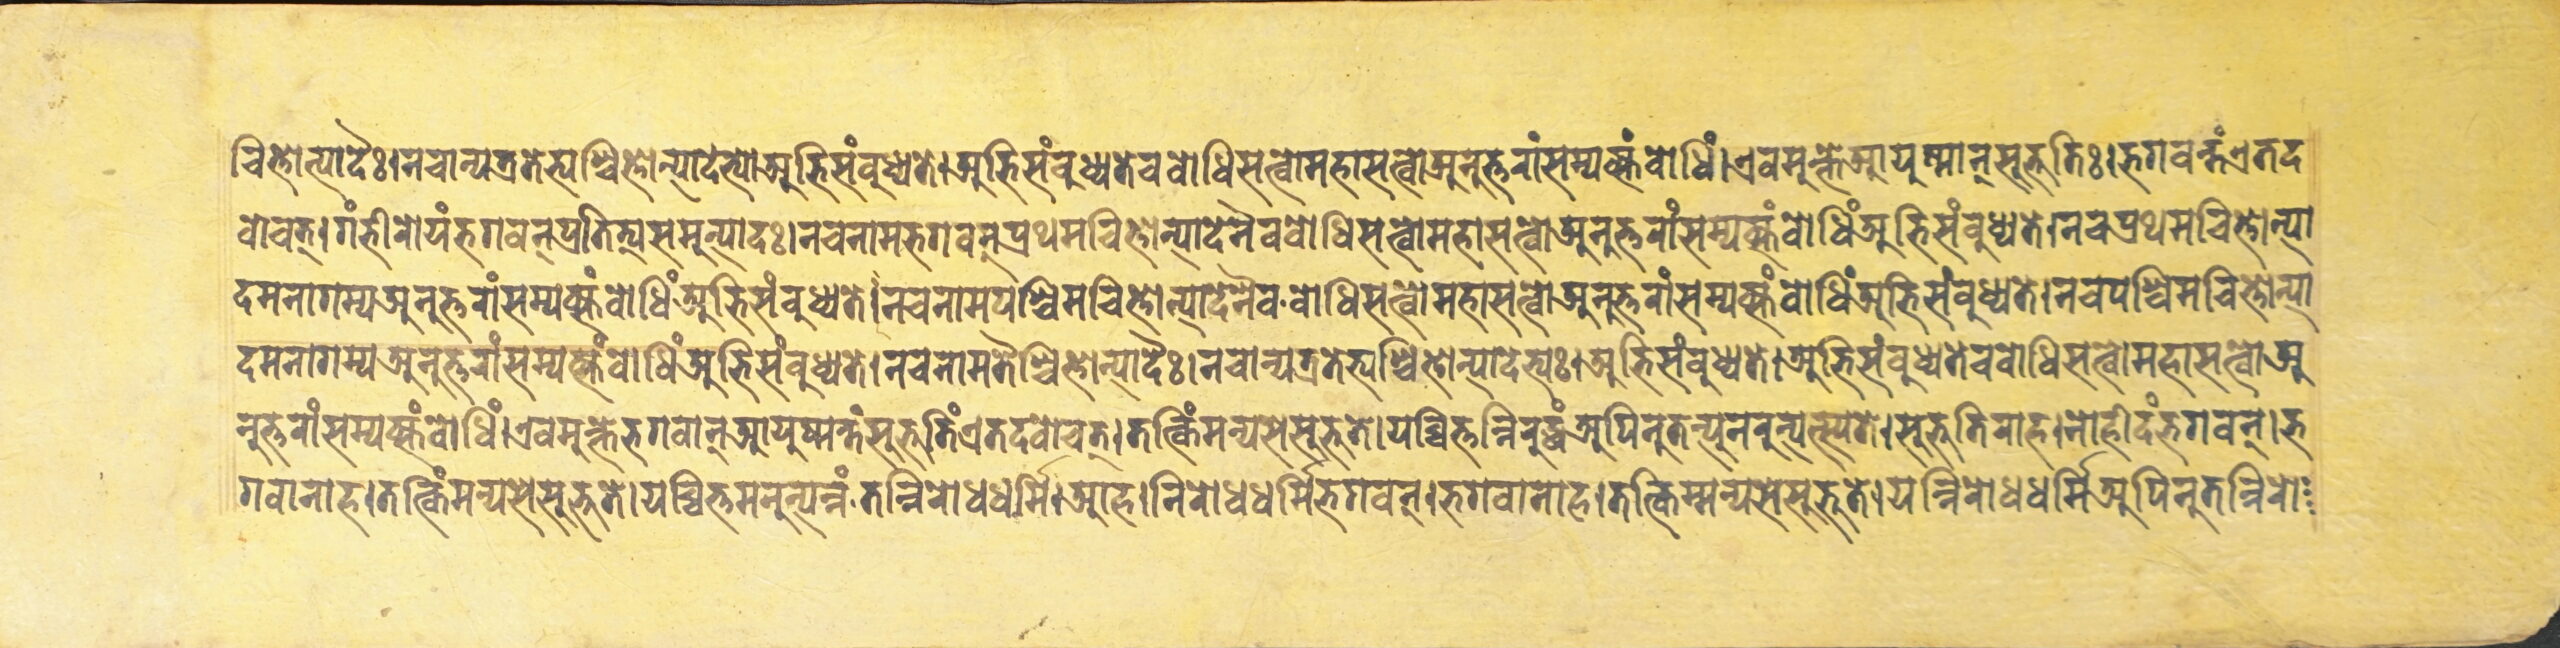 चित्तोत्पादैः।नचान्यत्रतेभ्यश्चित्तोत्पादेभ्यो अभिसंबुध्यते।अभिसंबुध्यतेचबोधिसत्वोमहासत्वोअनुत्तरांसम्यक्संबोधिं।एवमुक्तेआयुष्मान्सूभूतिः।भगवन्तंएतद
वोचत्।गंभीरोयंभगवन्प्रतित्यसमुत्पादः।नचनामभगवन्प्रथमचित्तोत्पादेनैवबोधिसत्वोमहासत्वोअनुत्तरांसम्यक्संबोधिंअभिसंबुध्यते।नचप्रथमचित्तोत्पा
दमनागम्यअनुत्तरांसम्यक्संबोधिंअभिसंबुध्यते।नचनामपश्चिमचित्तोत्पादेनैवबोधिसत्वोमहासत्वोअनुत्तरांसम्यक्संबोधिंअभिसंबुध्यते।नचपश्चिमचित्तोत्पा
दमनागम्यअनुत्तरांसम्यक्संबोधिंअभिसंबुध्यते।नचनामतैश्चित्तोत्पादैः।नचान्यत्रतेभ्यश्चित्तोत्पादेभ्यः।अभिसंबुध्यते।अभिसंबुध्यतेचबोधिसत्वोमहासत्वोअ
नुत्तरांसम्यक्संबोधिं।एवमुक्तेभगवान्आयुष्मन्तंसुभूतिंएतदवोचत्।तत्किंमन्यसेसुभूते।यच्चित्तन्निरुद्धंअपिनुतन्पुनरुत्पत्स्यते।सुभूतिराह।नोहीदंभगवन्।भ
गवानाह।तत्किंमन्यसेसुभूते।यच्चित्तमनुत्पन्नंतन्निरोधधर्मि।आह।निरोधधर्मिभगवन्।भगवानाह।तत्किम्मन्यसेसुभूते।यन्निरोधधर्मिअपिनुतन्निरो